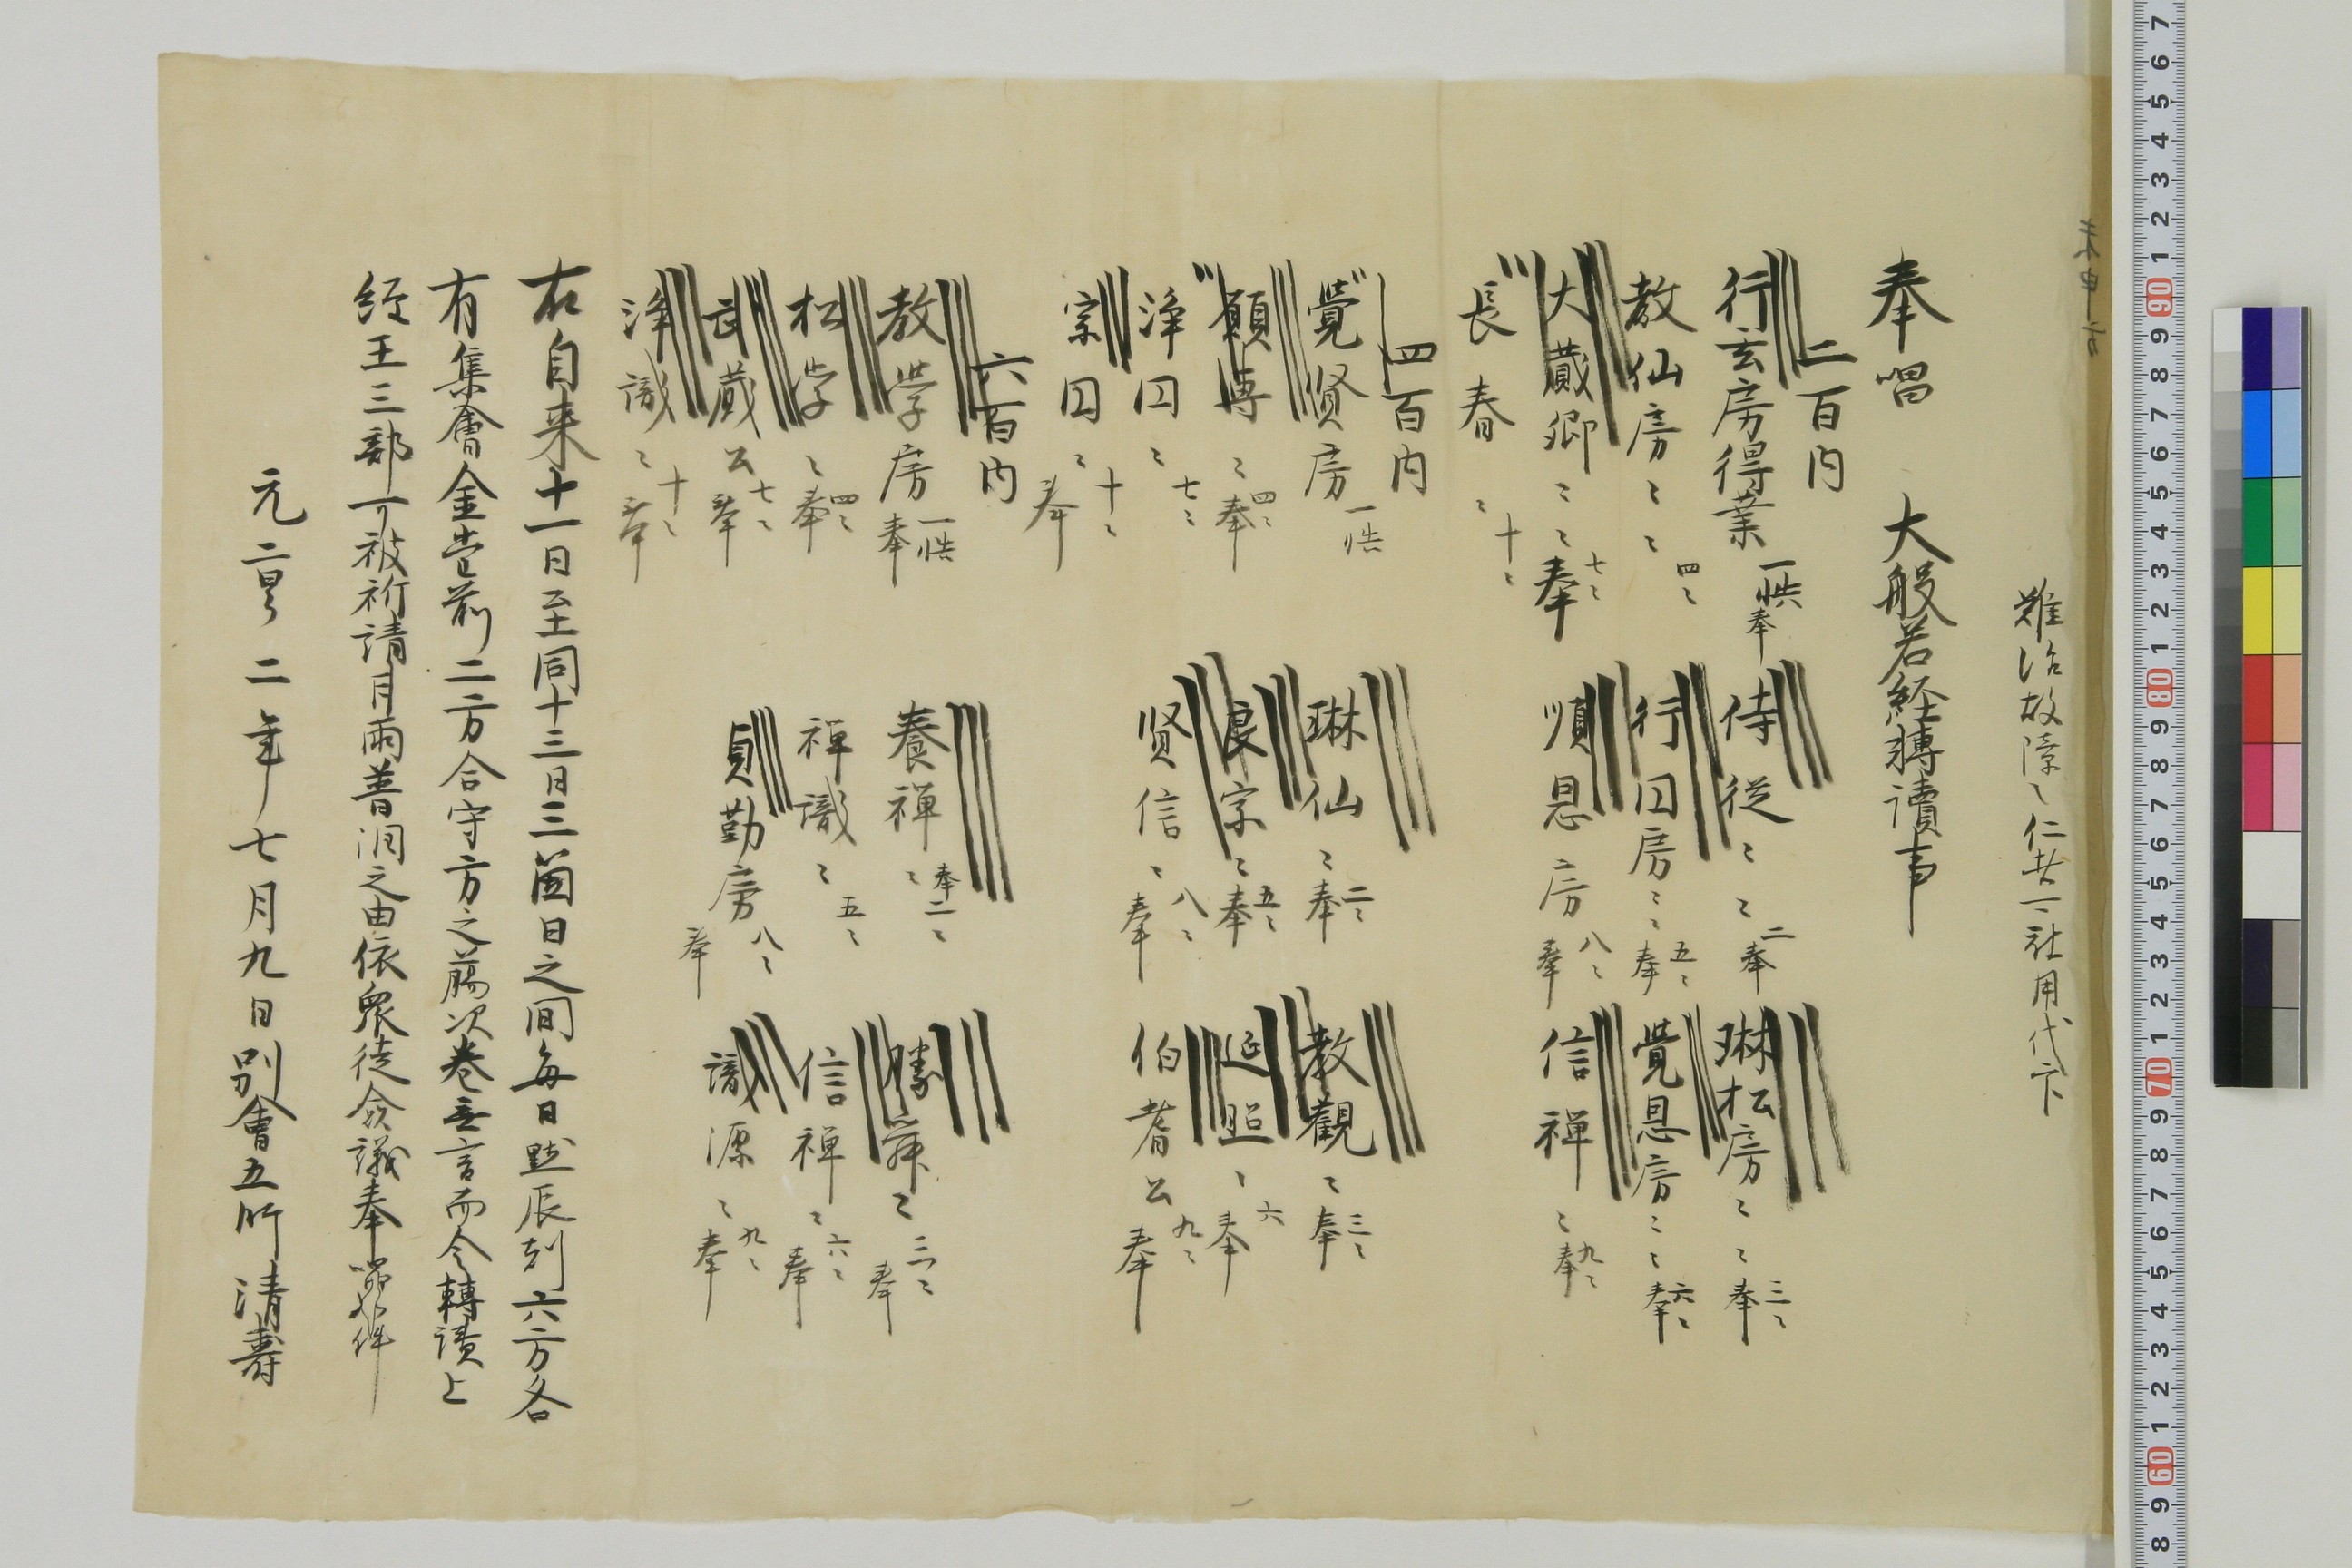 難治故障之仁共一社用代下
奉唱　大般若経轉讀事
二百内
行玄房得業 一帙 奉　侍従〻〻 二 奉　琳松房〻〻 三〻 奉
教仙房〻〻 四〻　行因房〻〻 五〻 奉　覚恩房〻〻 六〻 奉
大蔵卿〻〻 七〻 奉　順恩房 八〻 奉　信禅〻 九〻 奉
長春〻 十〻
四百内
覺賢房 一帙　琳仙〻 二〻 奉　教觀〻 三〻 奉
願専〻 四〻 奉　良宗〻 五〻 奉　延照〻 六 奉
浄因〻 七〻　賢信〻 八〻 奉　伯耆公 九〻 奉
宗因〻 十〻 奉
六百内
教学房 一帙 奉　養禅〻 二〻 奉　勝舜〻 三〻 奉
松学〻 四〻 奉　禅識〻 五〻　信禅〻 六〻 奉
武蔵公 七〻 奉　貞勤房 八〻 奉　識源〻 九〻 奉
浄識〻 十〻 奉
右自来十一日至同十三日三箇日之間毎日點辰剋六方各
有集會金堂前二方合守方之﨟次巻无言而令轉讀上
経王三部可被祈請月雨普潤之由依衆徒僉議奉唱如件
元亨二年七月九日別會五師清壽